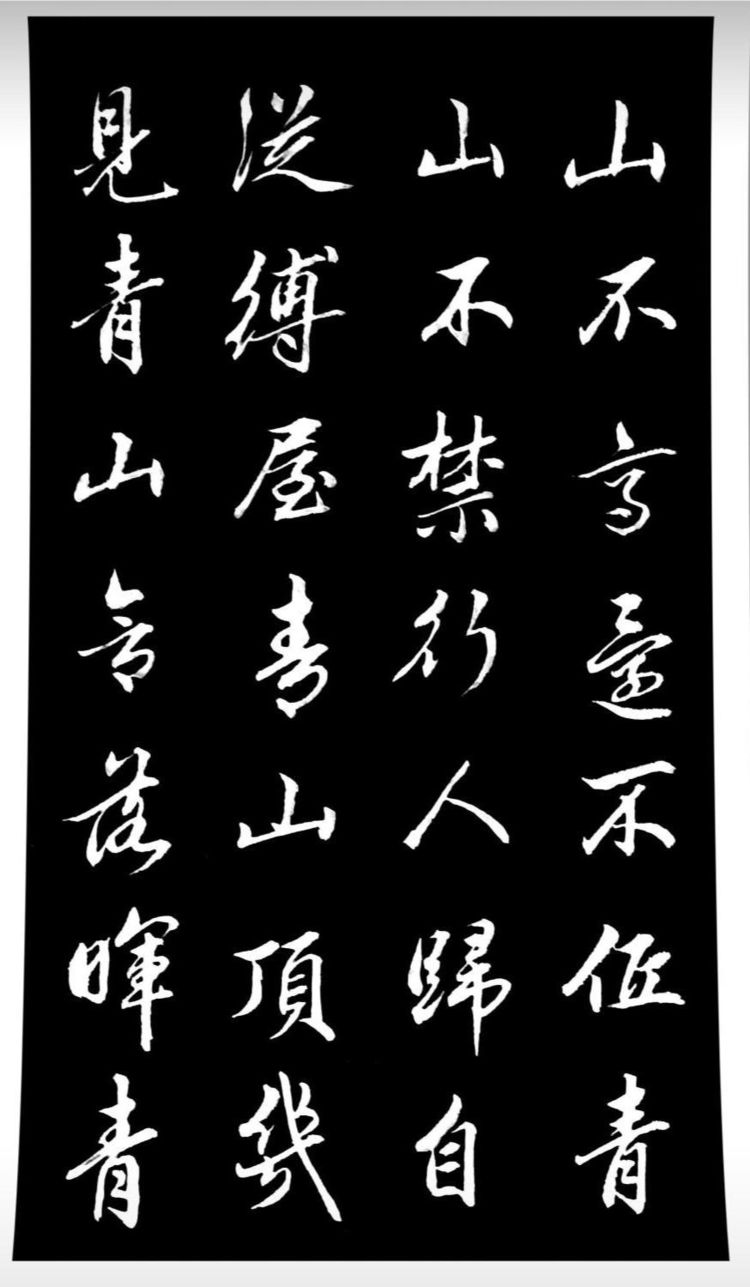 山不高還不低青
山不禁行人歸自
從縛屋青山頂幾
見青山含落暉青